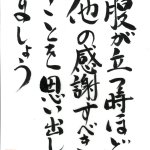 腹が立つ時ほど
他の感謝すべき
ことを思い出し
ましょう